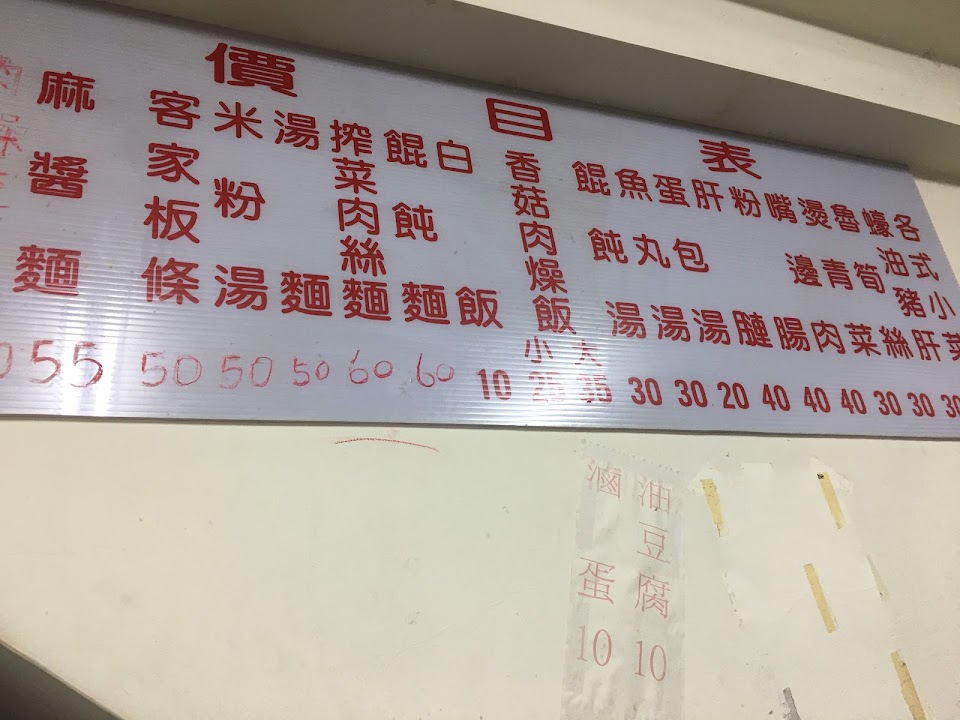 價目表
麻醬麵 55
客家板條 50
米粉湯 50
湯麵 50
榨菜肉絲麵 60
餛飩麵 60
白飯 10
香菇肉燥飯 小 25 大 35
餛飩湯 30
魚丸湯 30
蛋包湯 20
肝 40
粉腸 40
嘴邊肉 40
燙青菜 30
魯筍絲 30
蠔油豬肝 30
各式小菜
滷蛋 10
油豆腐 10